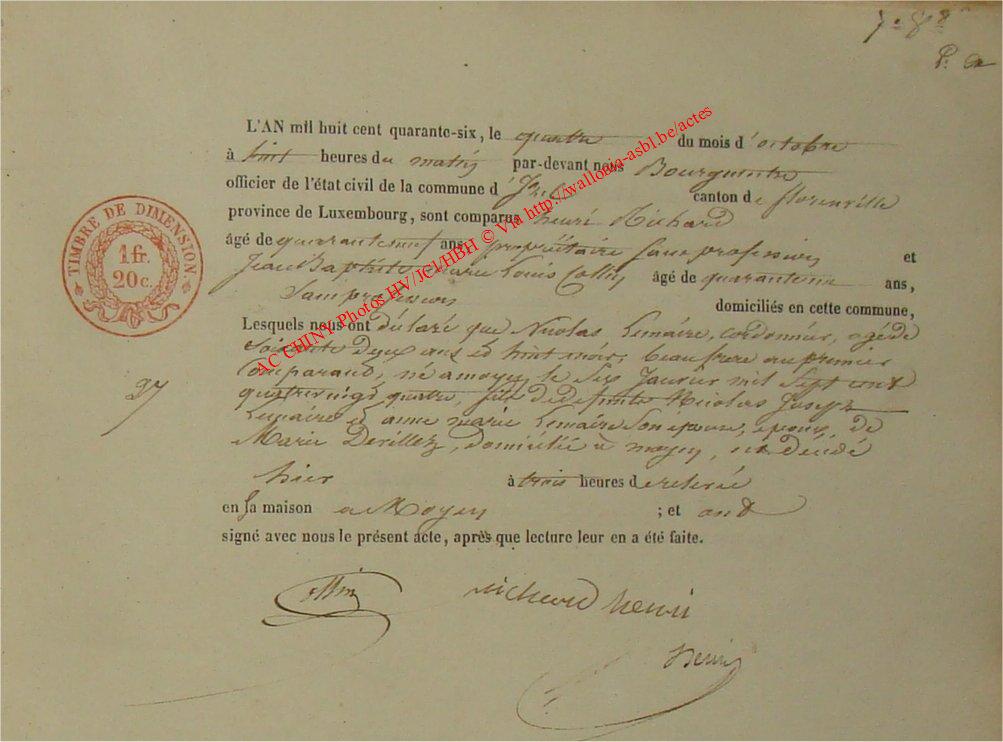 L'AN mil huit cent quarante-six, le quatre du mois d'octobre
à huit heures du matin par-devant nous Bourgmestre
officier de l'état civil de la commune d' canton de florenville
province de Luxembourg, sont comparus henri Richard
âgé de quaranteneuf ans, propriétaire sans profession et
Jean Baptiste marie Louis Collin âgé de quarante ans,
Sans profession domiciliés en cette commune,
Lesquels nous ont déclaré que Nicolas Lemaire, cordonnier, agé de
Soixante Deux ans et huit mois, beaufrere au premier
comparand, né a moyen le Six Janvier mil Sept cent
quatrevingt quatre, fils de defunts Nicolas Joseph
Lemaire et anne marie Lemaire Son epouse, epoux de
Marie Devillez, domicilié à moyen, est décédé
hier à trois heures de relevé
en sa maison a Moyen ; et ont
signé avec nous le présent acte, après que lecture leur en a été faite.
TIMBRE DE DIMENSION
1 fr.
20 c.
27
AC CHINY Photos HV/JCl/HBH © Via http://wallonia-asbl.be/actes
Collin
richard henri